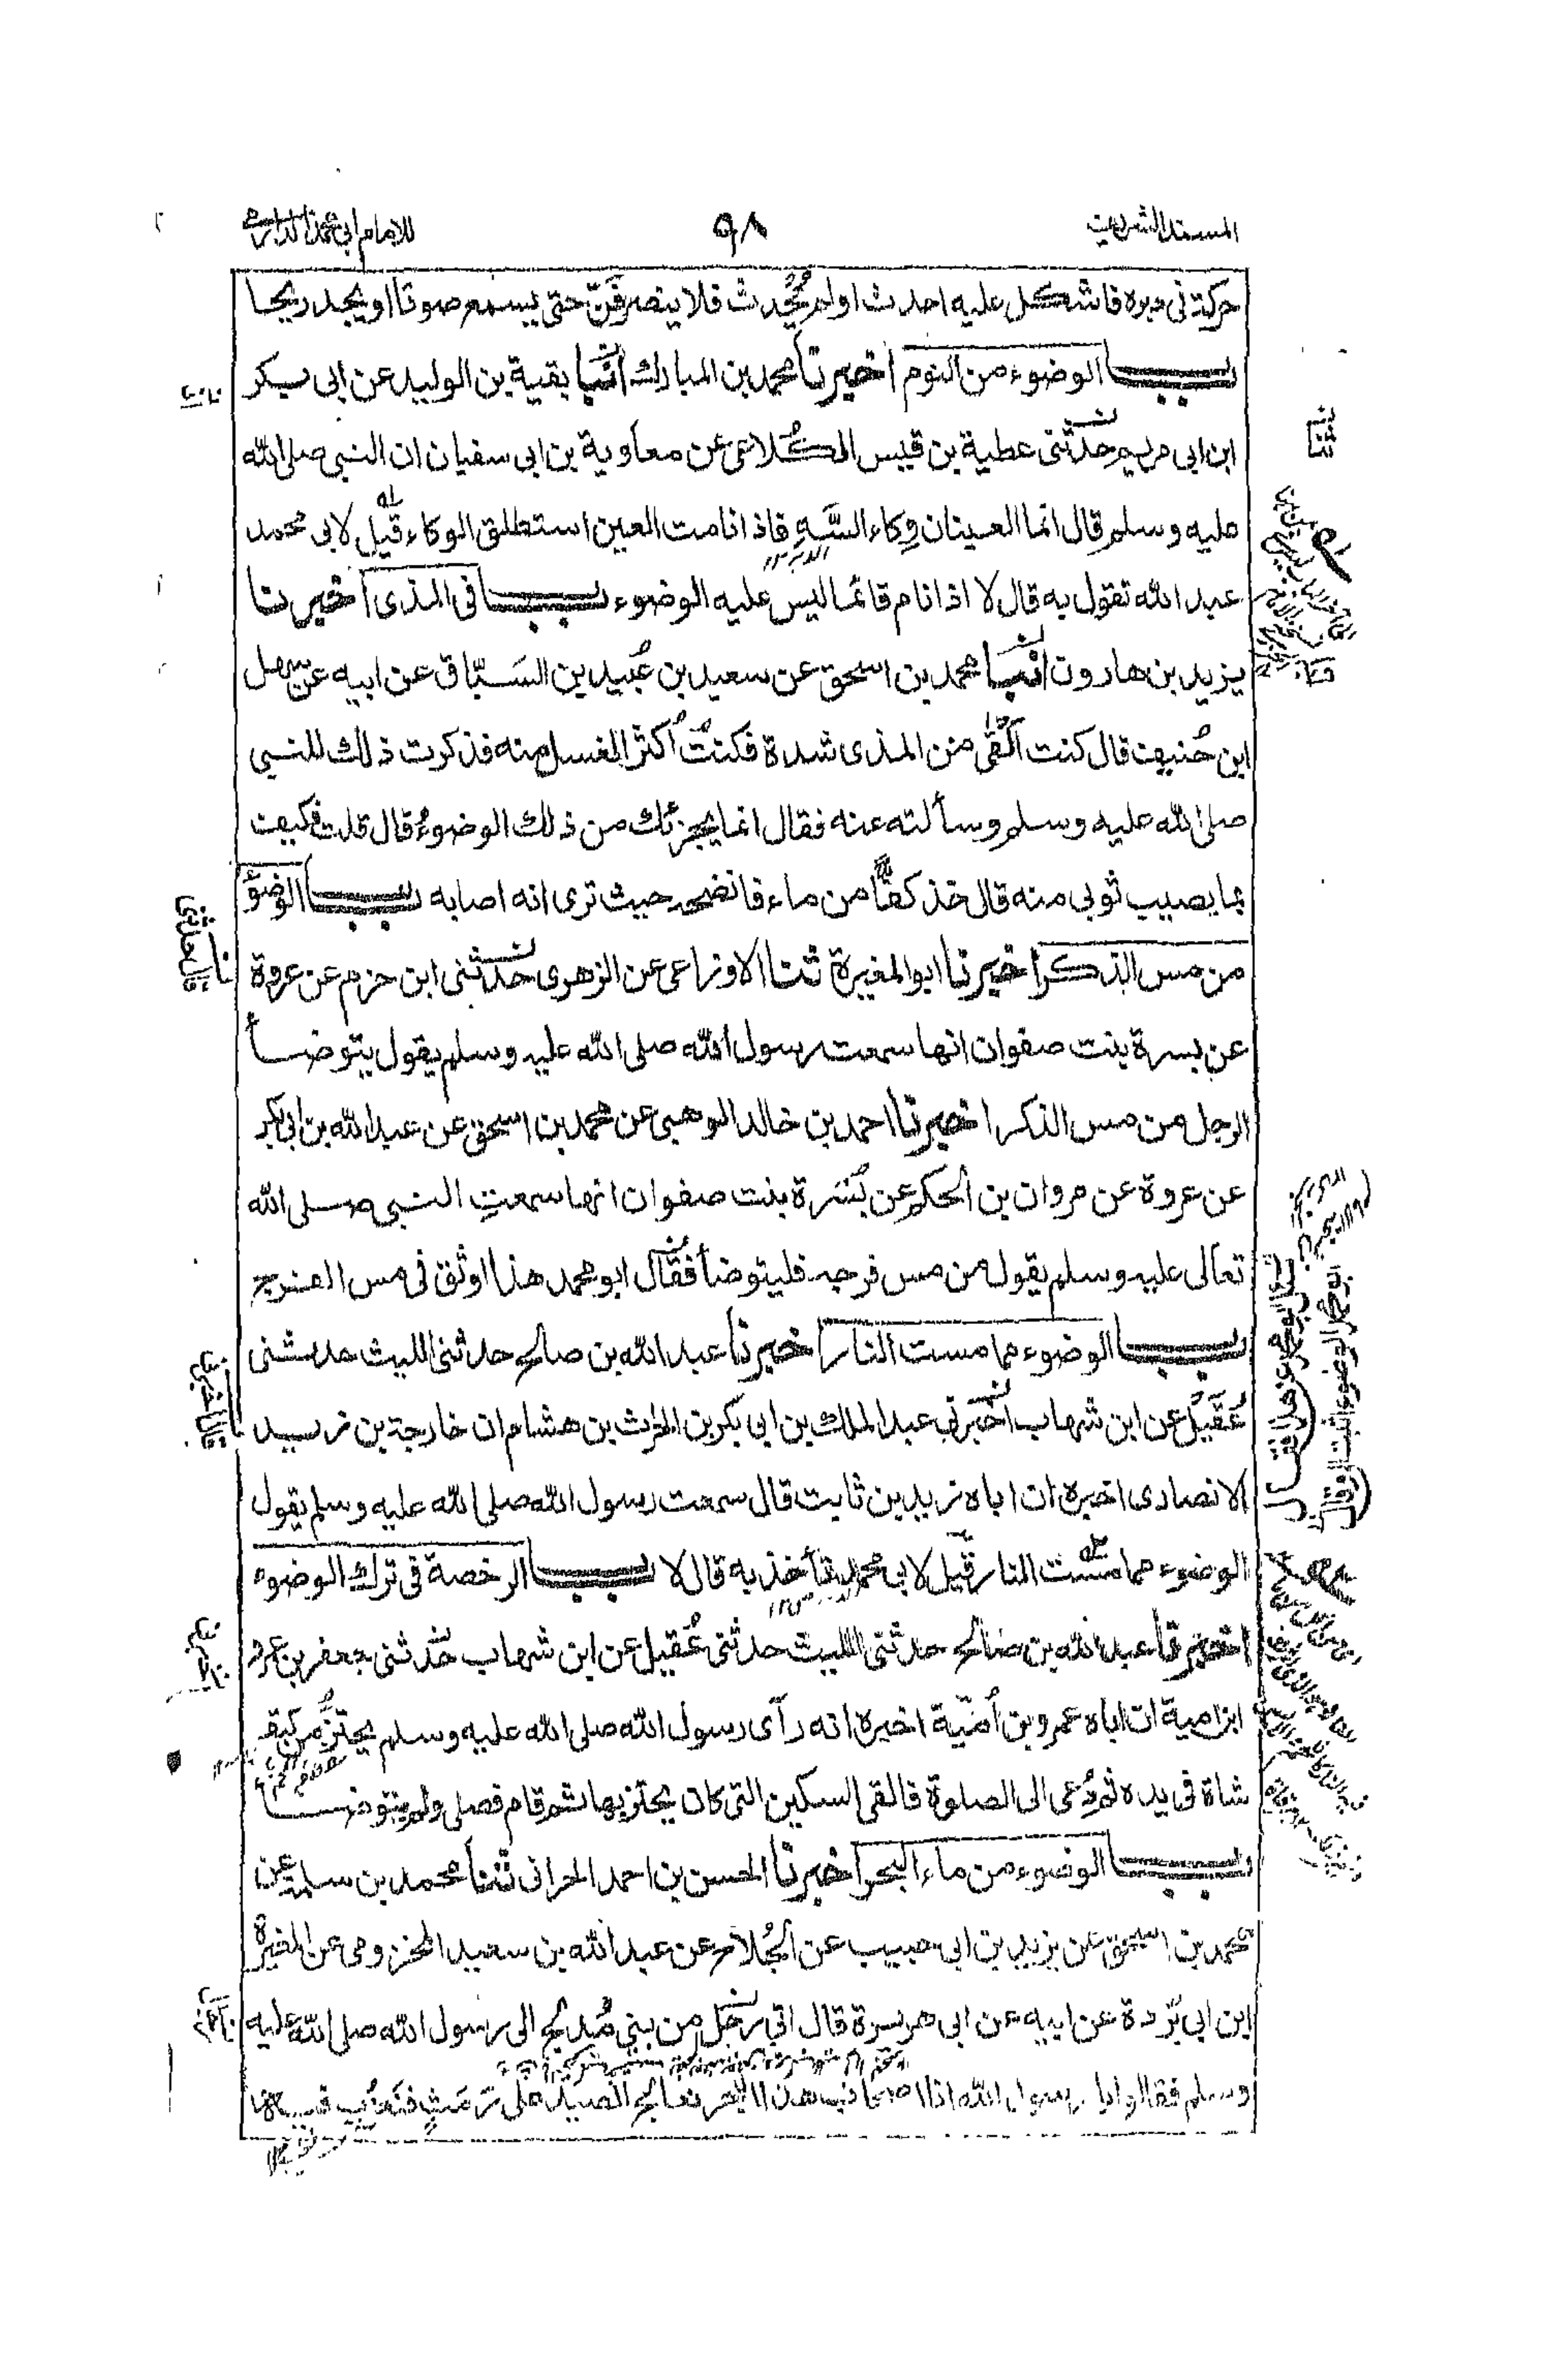 المسند الشريف
٩٨
للامام ابى محمد الدارمى
حركة فى دبره فاشكل عليه احدث اولم يحدث فلا ينصرفن حتى يسمع صوتا او يجد ريحا
باب الوضوء من النوم اخبرنا محمد بن المبارك انبأ بقية بن الوليد عن ابى بكر
ابن ابى مريم حدثنى عطية بن قيس الكلاعى عن معاوية بن ابى سفيان ان النبى صلى الله
عليه وسلم قال انما العينان وكاء السه فاذا نامت العين استطلق الوكاء قيل لابى محمد
عبد الله تقول به قال لا اذا نام قائما ليس عليه الوضوء باب فى المذى اخبرنا
يزيد بن هارون انبأ محمد بن اسحق عن سعيد بن عُبيد بن السَبّاق عن ابيه عن سهل
ابن حُنيف قال كنت القى من المذى شدة فكنتُ أُكثرُ الغسل منه فذكرت ذلك للنبى
صلى الله عليه وسلم وسألته عنه فقال انما يجزئك من ذلك الوضوءُ قال قلت فكيف
بما يصيب ثوبى منه قال خذ كفًّا من ماء فانضحه حيث ترى انه اصابه باب الوضوُء
من مس الذكر اخبرنا ابو المغيرة ثنا الاوزاعى عن الزهرى حدثنى ابن حزم عن عروة
عن بسرة بنت صفوان انها سمعت رسول الله صلى الله عليه وسلم يقول يتوضأ
الرجل من مس الذكر اخبرنا احمد بن خالد الوهبى عن محمد بن اسحق عن عبد الله بن ابى بكر
عن عروة عن مروان بن الحكم عن بُسْرة بنت صفوان انها سمعت النبى صلى الله
تعالى عليه وسلم يقول من مس فرجه فليتوضأ فقال ابو محمد هذا اوثق فى مس الفرج
باب الوضوء مما مست النار اخبرنا عبد الله بن صالح حدثنى الليث حدثنى
عُقَيْل عن ابن شهاب اخبرنى عبد الملك بن ابى بكر بن الحرث بن هشام ان خارجة بن زيد
الانصارى اخبره ان اباه زيد بن ثابت قال سمعت رسول الله صلى الله عليه وسلم يقول
الوضوء مما مست النار قيل لابى محمد تأخذ به قال لا باب الرخصة فى ترك الوضوء
اخبرنا عبد الله بن صالح حدثنى الليث حدثنى عُقيل عن ابن شهاب حدثنى جعفر بن عمرو
ابن امية ان اباه عمرو بن أُميّة اخبره انه رآى رسول الله صلى الله عليه وسلم يحتزُّ من كتف
شاة فى يده ثم دُعى الى الصلوة فالقى السكين التى كان يحتز بها ثم قام فصلى ولم يتوضأ
باب الوضوء من ماء البحر اخبرنا الحسن بن احمد الحرانى ثنا محمد بن سلمة عن
محمد بن اسحق عن يزيد بن ابى حبيب عن الجُلاح عن عبد الله بن سعيد المخزومى عن المغيرة
ابن ابى بُردة عن ابيه عن ابى هريرة قال اتى رجل من بنى مُدلج الى رسول الله صلى الله عليه
وسلم فقالوا يا رسول الله انا اصحاب هذا البحر نعالج الصيد على رَمَثٍ فنَعزُب فيه